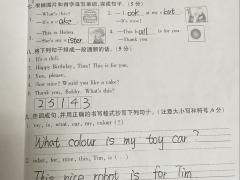 根据图片和首字母写单词,完成句子。(5分)
—What's this? —Look at my hat.
—It's a cake. —It's nice!
—This is Helen. —This ball is for you.
—She's my sister. —Thank you.
将下列句子排成一段通顺的话。(5分)
1. It's a doll.
2. Happy Birthday, Tim! This is for you.
3. Yes, please.
4. How nice! Would you like a cake?
5. Thank you, Bobby. What's this?
2 5 1 4 3
连词成句,并用正确的书写格式抄写下列句子。(注意大小写和标点)
1. toy, is, what, car, my, colour (?)
What colour is my toy car?
2. robot, for, nice, this, Tim, is (.)
This nice robot is for Tim